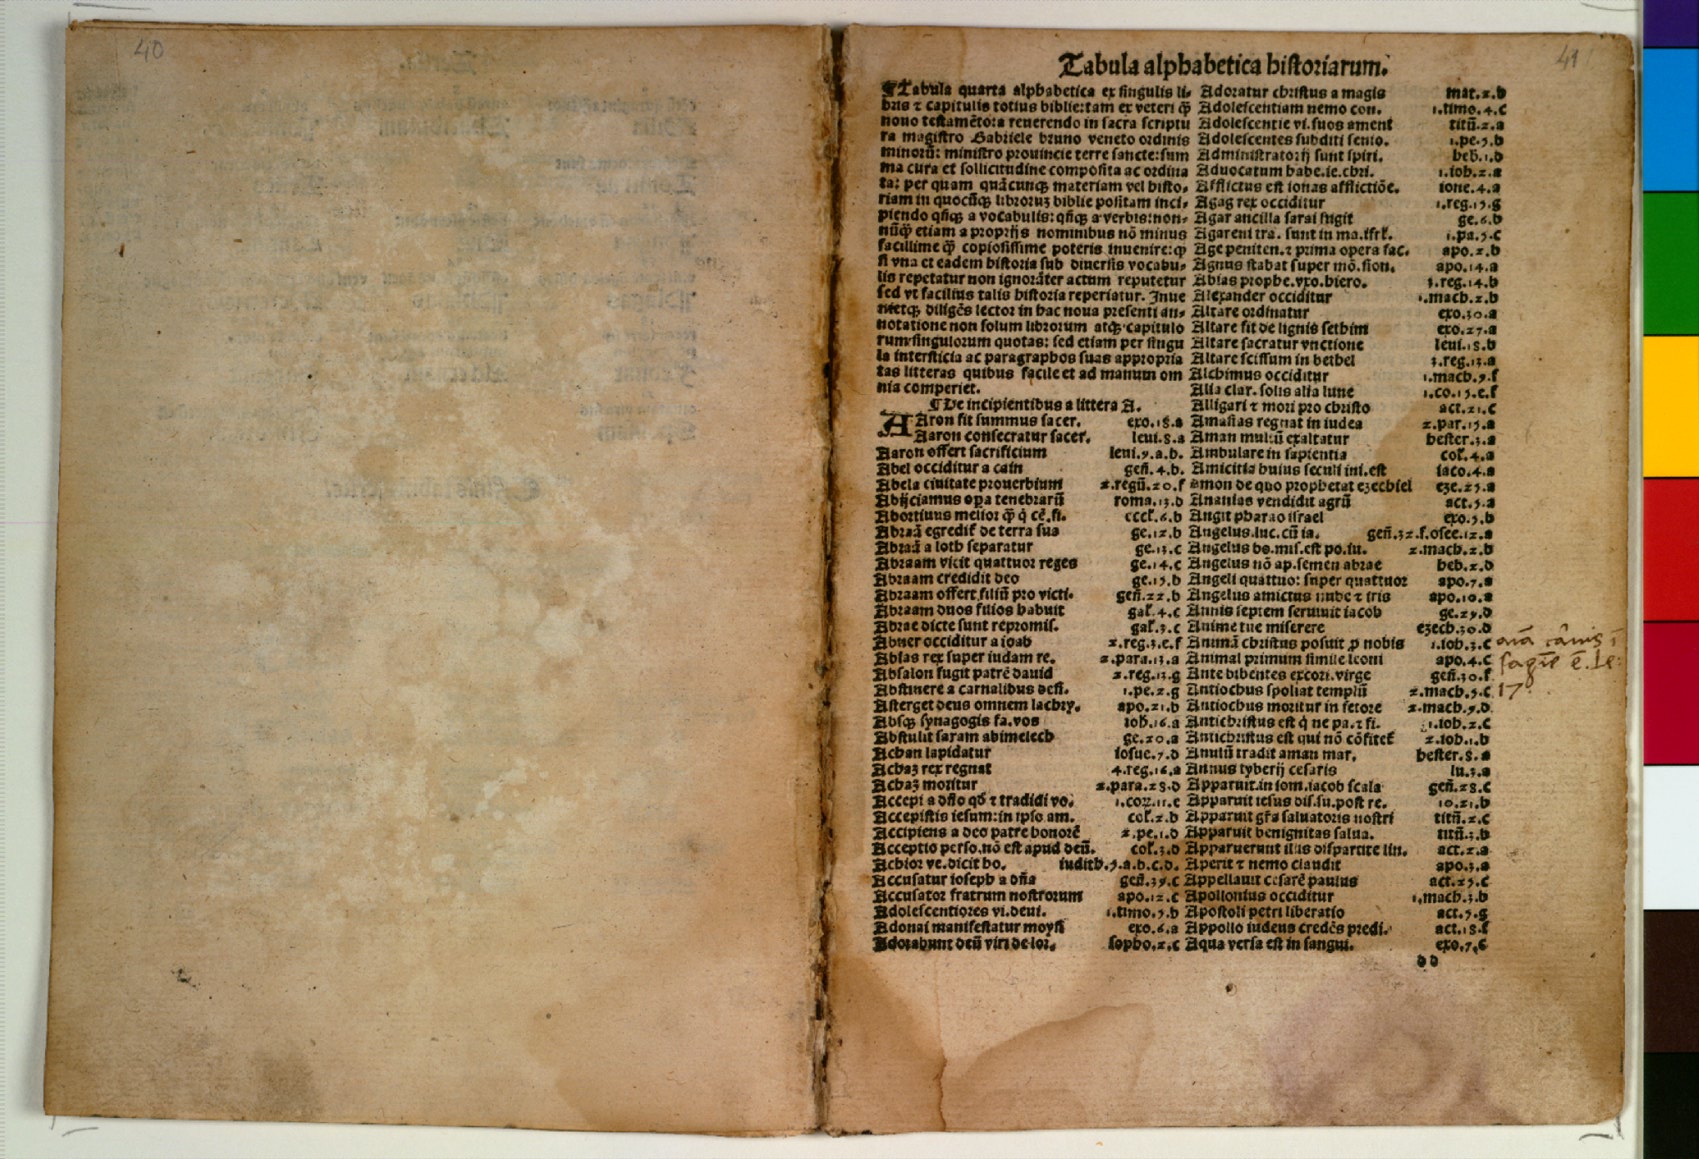 40
41
Tabula alphabetica historiarum.
¶Tabula quarta alphabetica ex singulis li-
bris ⁊ capitulis totius biblie: tam ex veteri q̃
nouo testamẽto: a reuerendo in sacra scriptu
ra magistro Gabriele bruno veneto ordinis
minorũ: ministro prouincie terre sancte: sum
ma cura et sollicitudine composita ac ordina
ta: per quam quãcunqꝫ materiam vel histo-
riam in quocũqꝫ libroruꝫ biblie positam inci-
piendo qñqꝫ a vocabulis: qñqꝫ a verbis: non-
nũq̃ etiam a proprijs nominibus nõ minus
facillime q̃ copiosissime poteris inuenire: ꝙ
si vna et eadem historia sub diuersis vocabu-
lis repetatur non ignorãter actum reputetur
sed vt facilius talis historia reperiatur. Inue
nietqꝫ diligẽs lector in hac noua presenti an-
notatione non solum librorum atqꝫ capitulo
rum singulorum quotas: sed etiam per singu
la intersticia ac paragraphos suas appropria
tas litteras quibus facile et ad manum om
nia comperiet.
¶De incipientibus a littera A.
AAron fit summus sacer. exo.18.a
Aaron consecratur sacer. leui.8.a
Aaron offert sacrificium leui.9.a.b.
Abel occiditur a cain geñ.4.b.
Abela ciuitate prouerbium 2.regũ.20.f
Abijciamus opa tenebrarũ roma.13.d
Abortiuus melior q̃ q̇ cẽ.fi. eccl.6.b
Abraã egredit de terra sua ge.12.b
Abraã a loth separatur ge.13.c
Abraam vicit quattuor reges ge.14.c
Abraam credidit deo ge.15.b
Abraam offert filiũ pro victi. geñ.22.b
Abraam duos filios habuit gal.4.c
Abrae dicte sunt repromis. gal.3.c
Abner occiditur a ioab 2.reg.3.e.f
Abias rex super iudam re. 2.para.13.a
Absalon fugit patrẽ dauid 2.reg.13.g
Abstinere a carnalibus desi. 1.pe.2.g
Asterget deus omnem lachry. apo.21.b
Absqꝫ synagogis fa.vos ioh.16.a
Abstulit saram abimelech ge.20.a
Achan lapidatur iosue.7.d
Achaꝫ rex regnat 4.reg.16.a
Achaꝫ moritur 2.para.28.d
Accepi a dño qd ⁊ tradidi vo. 1.cor.11.c
Accepistis iesum: in ipso am. col.2.b
Accipiens a deo patre honorẽ 2.pe.1.d
Acceptio perso.nõ est apud deũ. col.3.d
Achior ve.dicit ho. iudith.5.a.b.c.d.
Accusatur ioseph a dña geñ.39.c
Accusator fratrum nostrorum apo.12.c
Adolescentiores vi.deui. 1.timo.5.b
Adonai manifestatur moysi exo.6.a
Adorabunt deũ viri de lor. sopho.2.c
Adoratur christus a magis mat.2.b
Adolescentiam nemo con. 1.timo.4.c
Adolescentie vi.suos ament titũ.2.a
Adolescentes subditi senio. 1.pe.5.b
Administratorij sunt spiri. heb.1.d
Aduocatum habe.ie.chri. 1.ioh.2.a
Afflictus est ionas afflictiõe. ione.4.a
Agag rex occiditur 1.reg.15.g
Agar ancilla sarai fugit ge.6.b
Agareni tra. sunt in ma.isrl. 1.pa.5.c
Age peniten.⁊ prima opera fac. apo.2.b
Agnus stabat super mõ.sion. apo.14.a
Ahias prophe.vxo.hiero. 3.reg.14.b
Alexander occiditur 1.mach.2.b
Altare ordinatur exo.30.a
Altare fit de lignis sethim exo.27.a
Altare sacratur vnctione leui.18.b
Altare scissum in bethel 3.reg.13.a
Alchimus occiditur 1.mach.9.f
Alia clar.solis alia lune 1.co.15.e.f
Alligari ⁊ mori pro christo act.21.c
Amasias regnat in iudea 2.par.15.a
Aman multũ exaltatur hester.3.a
Ambulare in sapientia col.4.a
Amicitia huius seculi ini.est iaco.4.a
Amon de quo prophetat eꝫechiel eze.25.a
Ananias vendidit agrũ act.5.a
Angit pharao israel exo.5.b
Angelus.luc.cũ ia. geñ.32.f.osee.12.a
Angelus bo.mis.est po.iu. 2.mach.2.b
Angelus nõ ap.semen abrae heb.2.d
Angeli quattuor super quattuor apo.7.a
Angelus amictus nube ⁊ iris apo.10.a
Annis septem seruiuit iacob ge.29.d
Anime tue miserere eꝫech.30.d
Animã christus posuit ꝓ nobis 1.ioh.3.c
Animal primum simile leoni apo.4.c
Ante bibentes excori.virge geñ.30.f
Antiochus spoliat templũ 2.mach.5.c
Antiochus moritur in fetore 2.mach.9.d
Antichristus est q̇ ne pa.⁊ fi. 1.ioh.2.c
Antichristus est qui nõ cõfitet 2.ioh.1.b
Anulũ tradit aman mar. hester.8.a
Annus tyberij cesaris lu.3.a
Apparuit.in iom.iacob scala geñ.28.c
Apparuit iesus dis.su.post re. io.21.b
Apparuit gr̃a saluatoris nostri titũ.2.c
Apparuit benignitas salua. titũ.3.b
Apparuerunt illis dispartite lin. act.2.a
Aperit ⁊ nemo claudit apo.3.a
Appellauit cesarẽ paulus act.25.c
Apollonius occiditur 1.mach.3.b
Apostoli petri liberatio act.5.g
Appollo iudeus credẽs predi. act.18.f
Aqua versa est in sangui. exo.7.c
aia carnis i
sagie e. Le:
17
dd